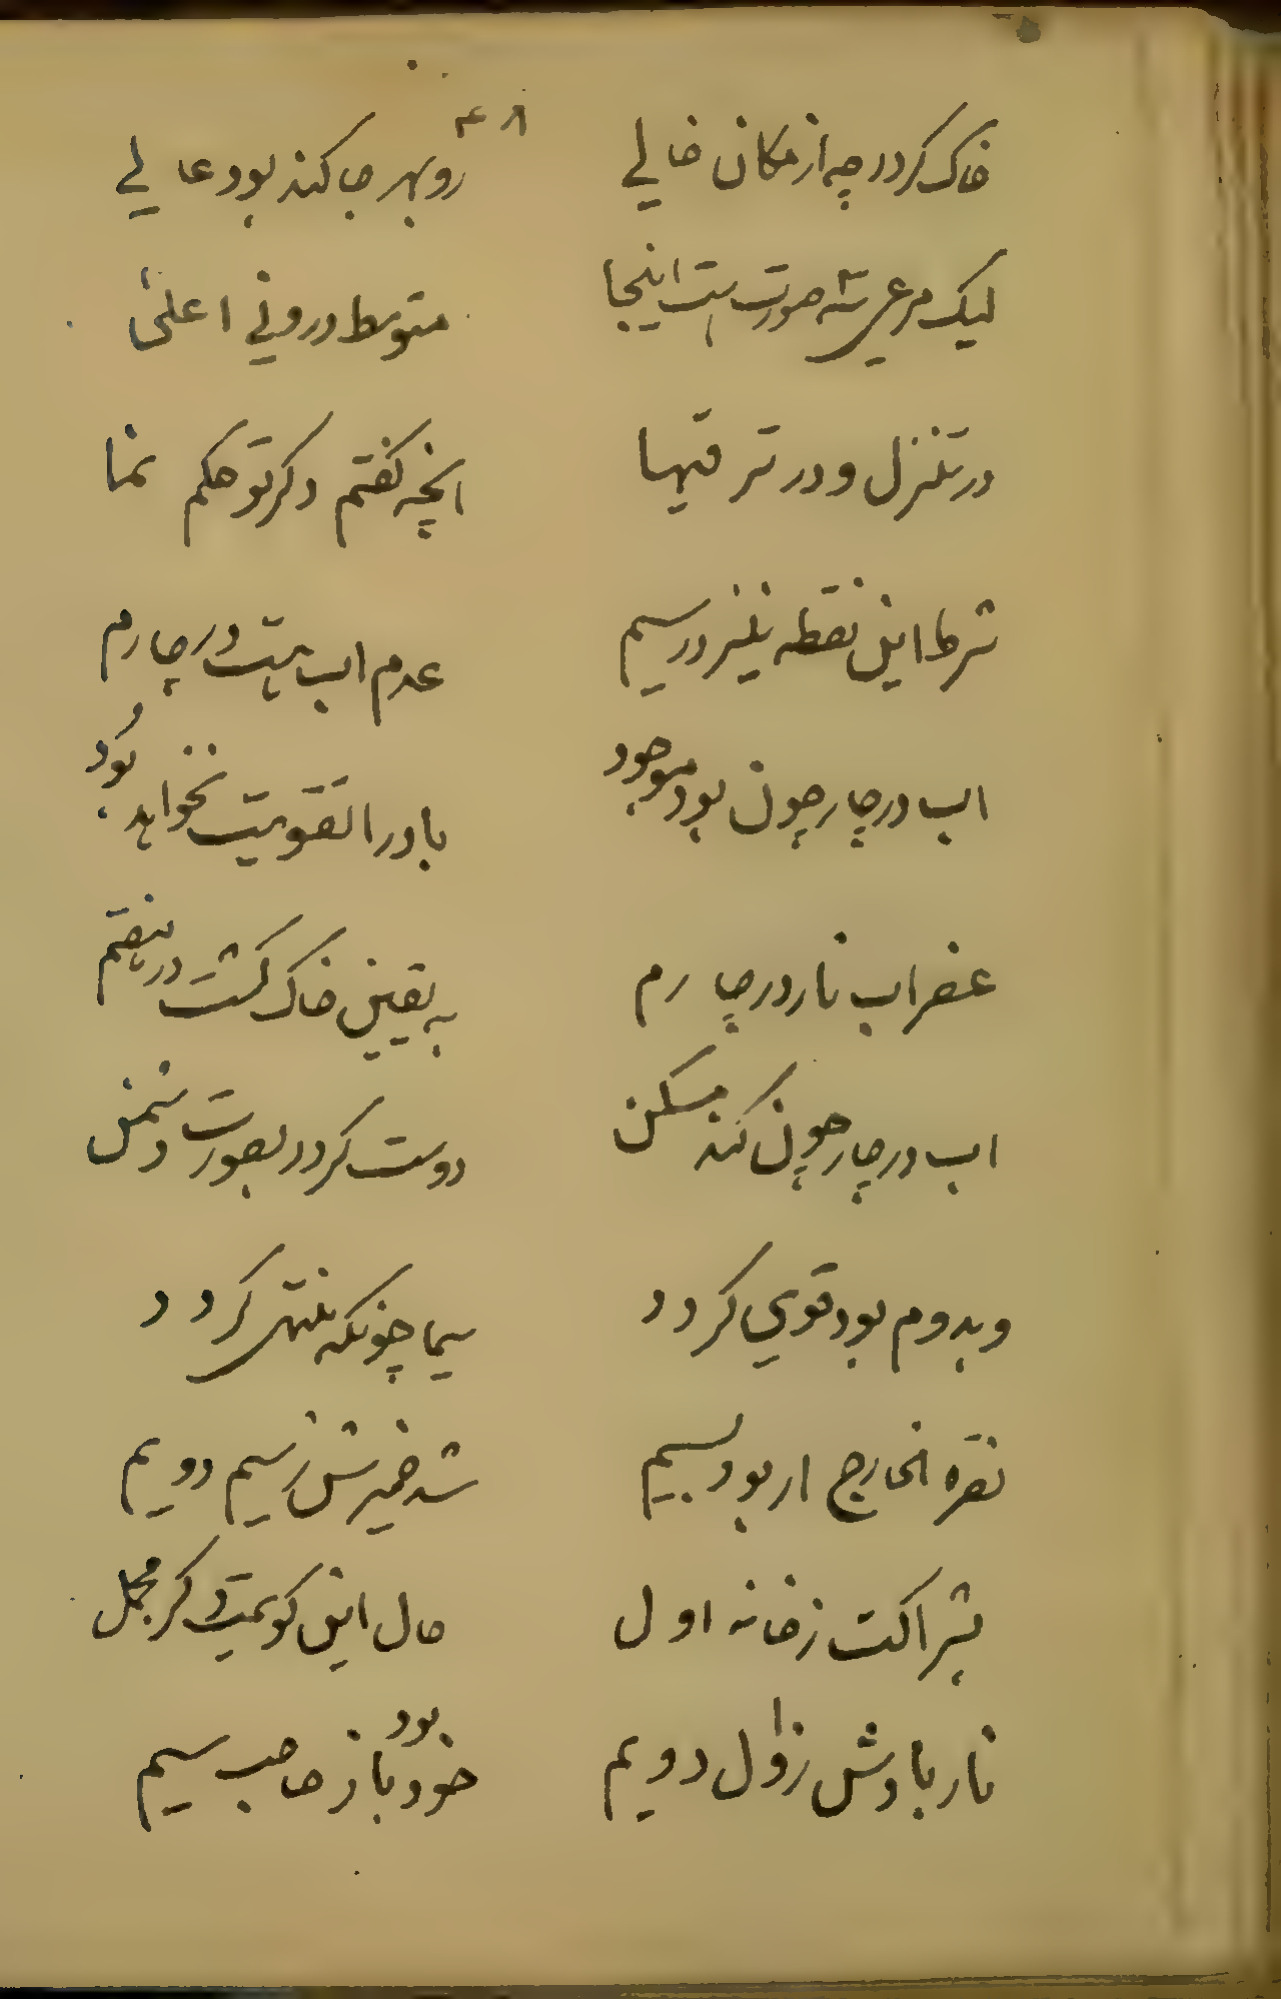 ۴۸
خاک کردد چه از مکان خالے روبهر جا کند بود عالے
لیک مرعی سه صورت است اینجا متوسط درونے اعلیٰ
در تنزل و در ترقیها انچه کفتم دکر تو حکم نما
شرط این نقطه نیز در سیم عدم اب هست در چارم
اب در چار چون بود موجود باد را تقویت نخواهد بود
عنصر اب نار در چارم به یقین خاک کشت در هفتم
اب در چار چون کند مسکن دوست کردد بصورت دشمن
ودهم بود قوی کردد سیما چونکه منتهی کردد
نقره الخارج ار بود بسیم شد ضمیرش ز سیم دویم
بشراکت ز خانه اول حال این کویمت دکر مجمل
نار بادش ز اول دویم خود بود باز صاحب سیم